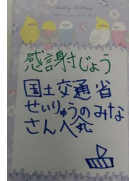 感謝じょう
国土交通省
せいりゅうのみな
さんへ